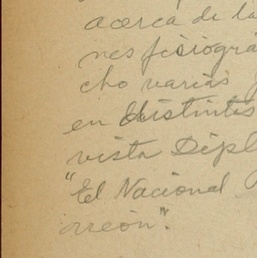 acerca de la
nes fisiográ
cho varias
en distintas
vista Dipl
"El Nacional
rreón".